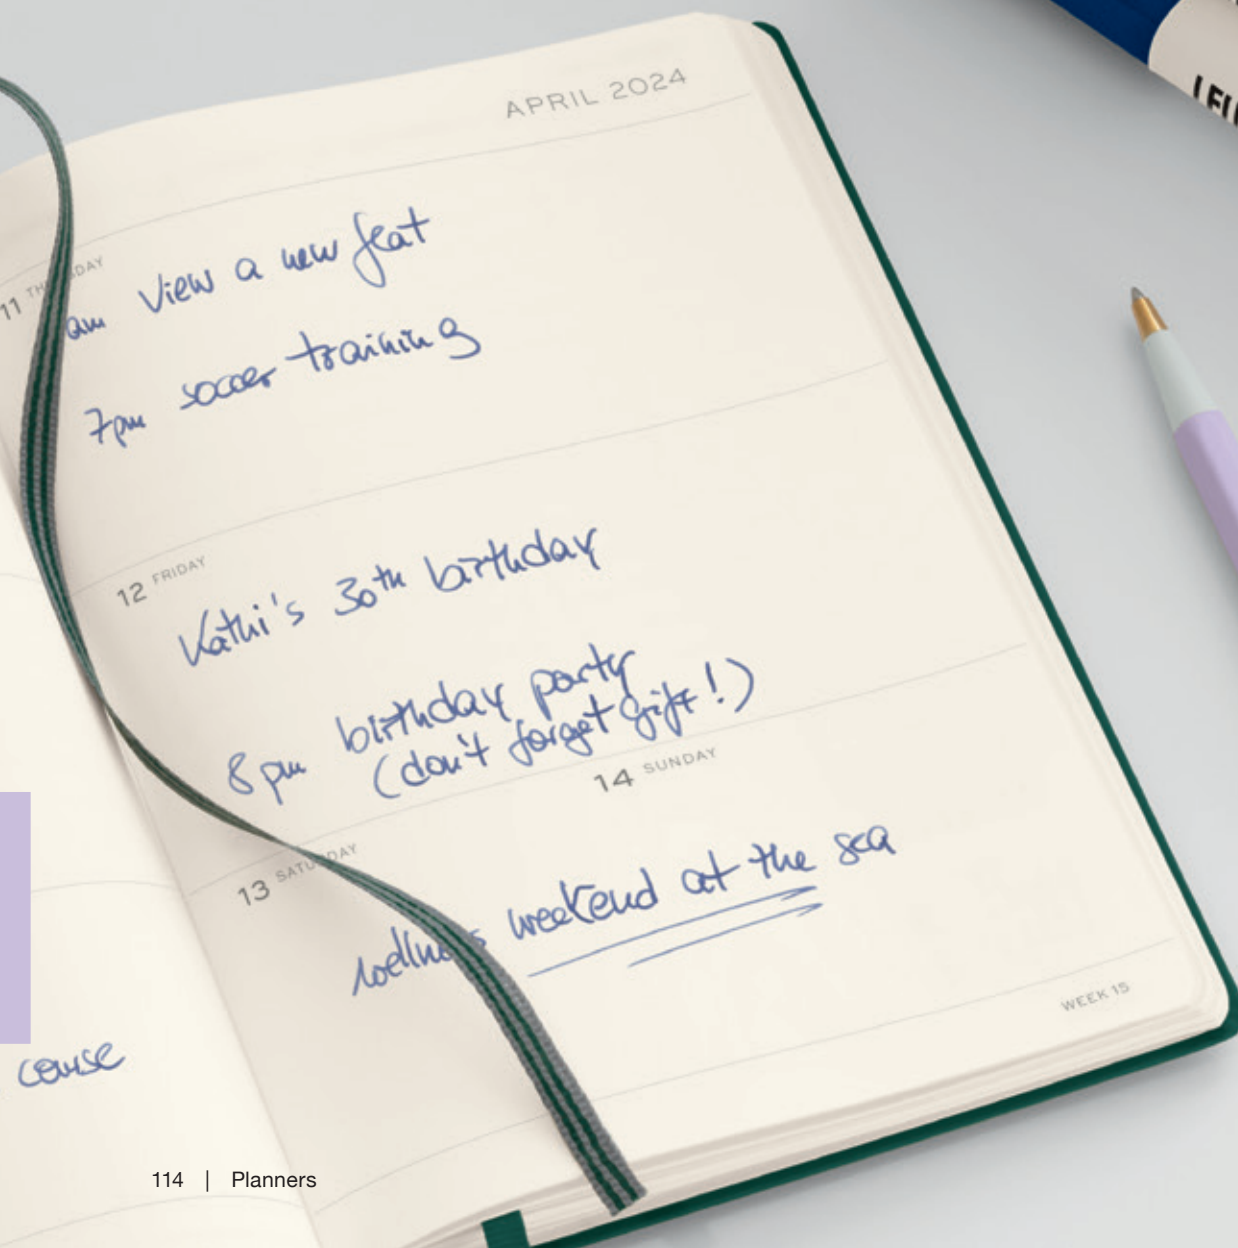 APRIL 2024
11
am View a new flat
7pm soccer training
12 FRIDAY
Kathi's 30th birthday
8pm birthday party
(don't forget gift!)
13 SATURDAY
14 SUNDAY
weekend at the sea
WEEK 15
course
114 | Planners